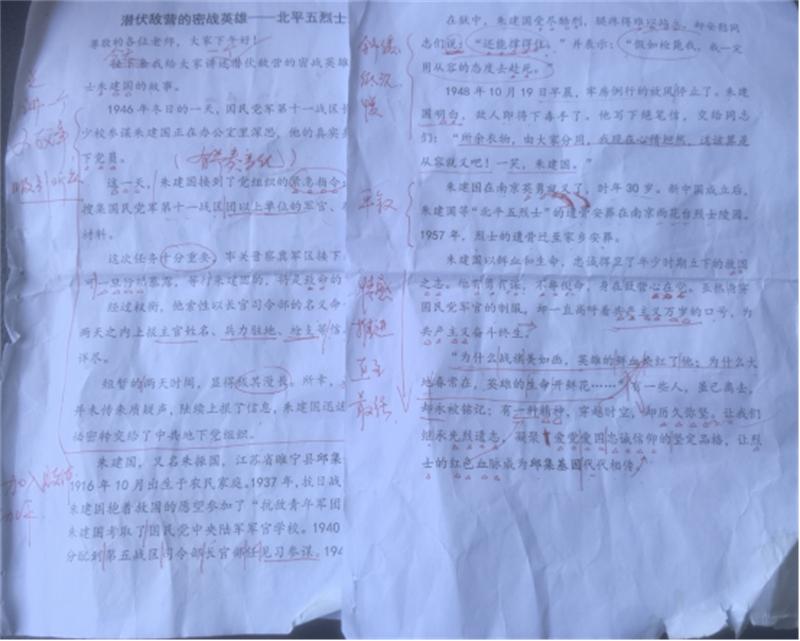 潜伏敌营的密战英雄——北平五烈士
尊敬的各位老师，大家下午好！
接下来我给大家讲述潜伏敌营的密战英雄
士朱建国的故事。
1946年冬日的一天，国民党军第十一战区长
少校参谋朱建国正在办公室里深思，他的真实身
下党员。
这一天，朱建国接到了党组织的紧急指令
搜集国民党军第十一战区团以上单位的军官、
材料。
这次任务十分重要，事关晋察冀军区接下
一旦身份暴露，等待朱建国的，将是致命的
经过权衡，他索性以长官司令部的名义命
两天之内上报主官姓名、兵力驻地、给主等信
详尽。
短暂的两天时间，显得极其漫长。所幸，
年未传来质疑声，陆续上报了信息，朱建国迅速
密转交给了中共地下党组织。
朱建国，又名朱振国，江苏省睢宁县邱集
1916年10月出生于农民家庭。1937年，抗日战
朱建国抱着救国的愿望参加了“抗敌青年军团
朱建国考取了国民党中央陆军军官学校。1940
分配到第五战区司令部长官部任见习参谋。194
在狱中，朱建国受尽酷刑，腿疼得难以站立，却安慰同
志们说：“还能撑得住。”并表示：“假如枪毙我，我一定
用从容的态度去赴死。”
1948年10月19日早晨，牢房例行的放风停止了。朱建
国明白，敌人即将下毒手了。他写下绝笔信，交给同志
们：“所余衣物，由大家分用，我现在心情坦然，这该算是
从容就义吧！一笑，朱建国。”
朱建国在南京英勇就义了，时年30岁。新中国成立后，
朱建国等“北平五烈士”的遗骨安葬在南京雨花台烈士陵园。
1957年，烈士的遗骨迁至家乡安葬。
朱建国以鲜血和生命，忠诚捍卫了年少时期立下的救国
之志。他有勇有谋，不辱使命，身在敌营心在党。虽然身穿
国民党军官的制服，却一直高呼着共产主义万岁的口号，为
共产主义奋斗终生。
“为什么战旗美如画，英雄的鲜血染红了她；为什么大
地春常在，英雄的生命开鲜花……”有一些人，虽已离去，
却永被铭记；有一种精神，穿越时空，却历久弥坚，让我们
继承先烈遗志，凝聚爱党爱国忠诚信仰的坚定品格，让烈
士的红色血脉成为邱集基因代代相传。